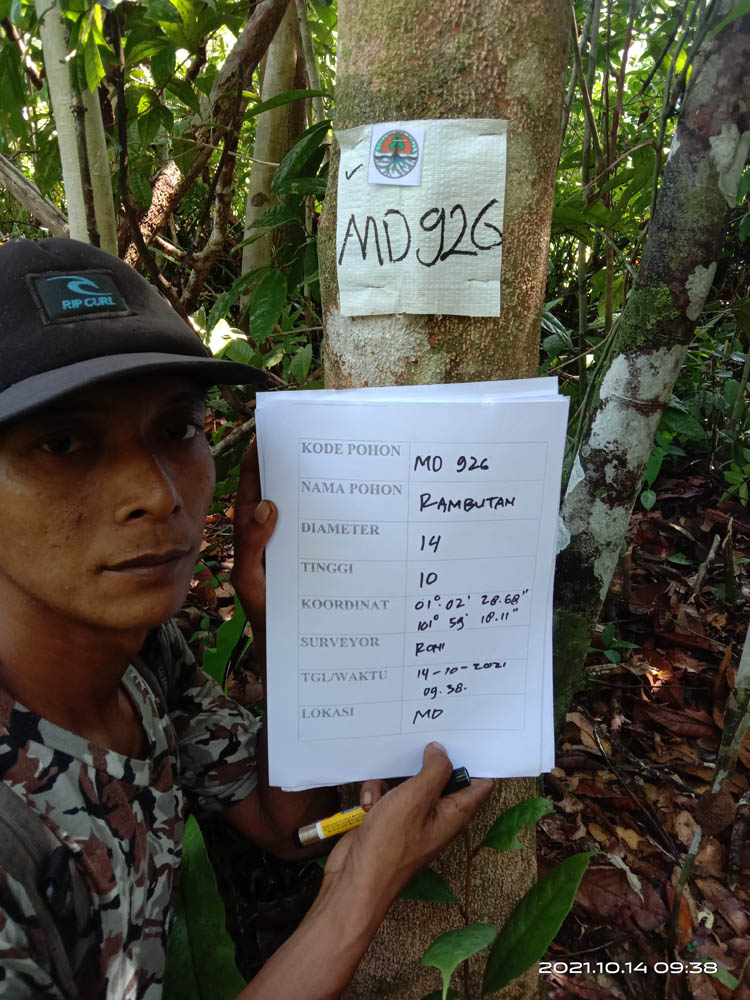 MD 926
RIP CURL
KODE POHON MD 926
NAMA POHON RAMBUTAN
DIAMETER 14
TINGGI 10
KOORDINAT 01°. 02' 28.68"
101° 59' 18.11"
SURVEYOR RONI
TGL/WAKTU 14-10-2021
09.38.
LOKASI MD
2021.10.14 09:38